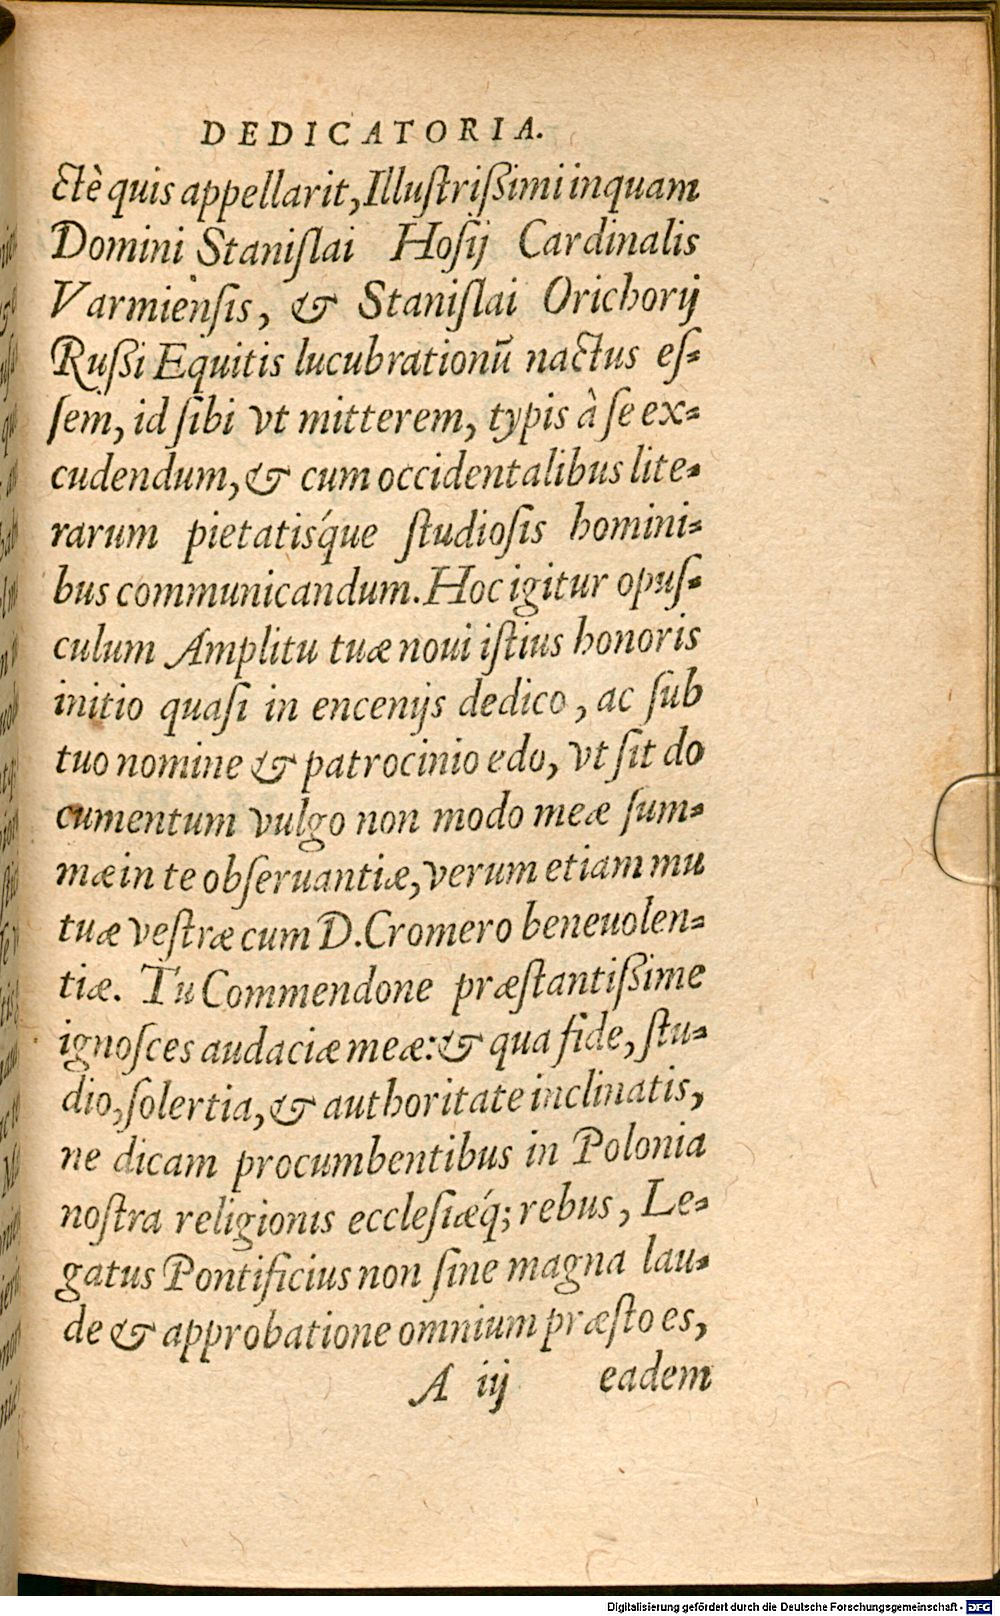 DEDICATORIA.
ctè quis appellarit, Illuſtriſsimi inquam
Domini Staniſlai Hoſij Cardinalis
Varmienſis, & Staniſlai Orichorij
Ruſsi Equitis lucubrationū nactus eſ-
ſem, id ſibi vt mitterem, typis à ſe ex-
cudendum, & cum occidentalibus lite-
rarum pietatisq́ue ſtudioſis homini-
bus communicandum. Hoc igitur opuſ-
culum Amplitu tuæ noui iſtius honoris
initio quaſi in encenijs dedico, ac ſub
tuo nomine & patrocinio edo, vt ſit do
cumentum vulgo non modo meæ ſum-
mæ in te obſeruantiæ, verum etiam mu
tuæ veſtræ cum D. Cromero beneuolen-
tiæ. Tu Commendone præſtantiſsime
ignoſces audaciæ meæ: & qua fide, ſtu-
dio, ſolertia, & authoritate inclinatis,
ne dicam procumbentibus in Polonia
noſtra religionis eccleſiæq́; rebus, Le-
gatus Pontificius non ſine magna lau-
de & approbatione omnium præſto es,
A iij eadem
Digitalisierung gefördert durch die Deutsche Forschungsgemeinschaft - DFG